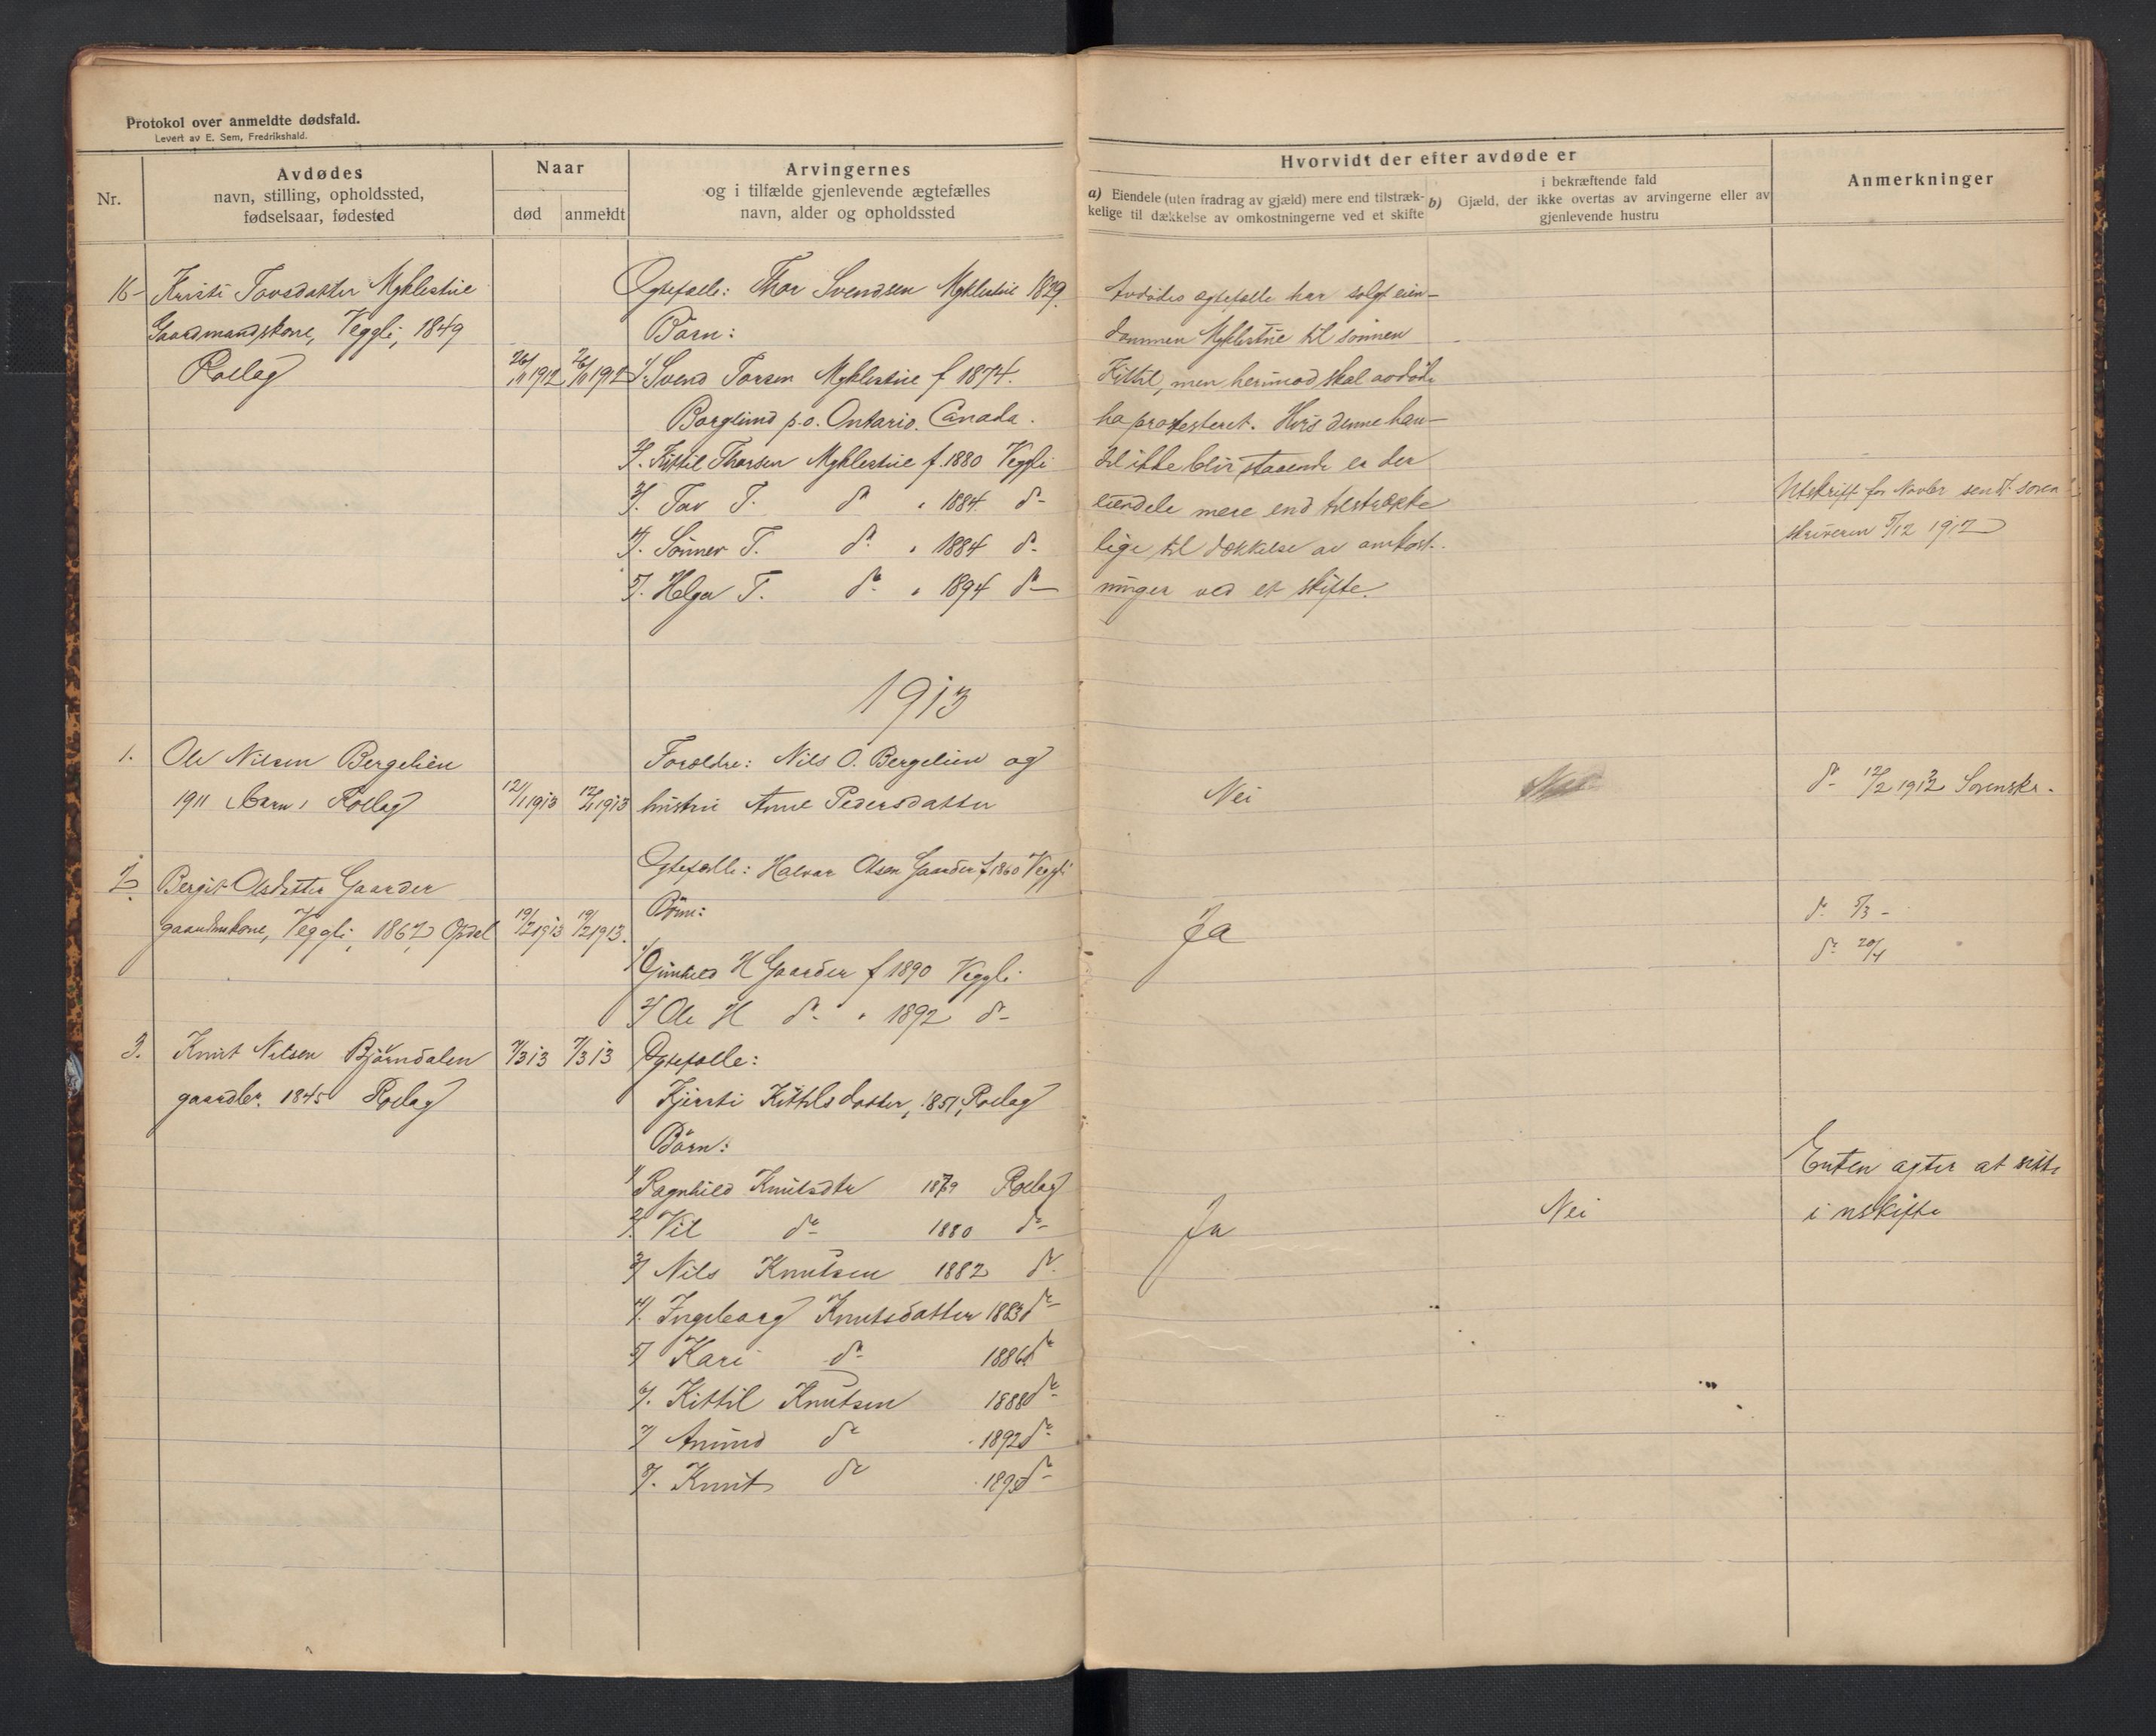 Protokol over anmeldte dødsfald.
Levert av E. Sem, Fredrikshald.
Nr.
Avdødes
navn, stilling, opholdssted,
fødselsaar, fødested
Naar
død
anmeldt
Arvingernes
og i tilfælde gjenlevende ægtefælles
navn, alder og opholdssted
Hvorvidt der efter avdøde er
a) Eiendele (uten fradrag av gjæld) mere end tilstræk-
kelige til dækkelse av omkostningerne ved et skifte
b)
i bekræftende fald
Gjæld, der ikke overtas av arvingerne eller av
gjenlevende hustru
Anmerkninger
16
Kristi Tovsdatter Myklestue
Gaardmandskone, Veggli, 1849
Rollag
26/11 1912
26/11 1912
Ægtefælle: Thor Svendsen Myklestue 1829.
Børn:
1/ Svend Torsen Myklestue f 1874.
Borglund p.o. Ontario. Canada.
2/. Kittil Thorsen Myklestue f. 1880 Veggli
3/. Tov T. do " 1884 do
4/. T. do " 1884 do
5/. Helga T. do " 1894 do
Avdødes ægtefælle har solgt eien-
dommen Myklestue til sønnen
Kittil, men herimod skal avdøde
ha protesteret. Hvis denne han-
del ikke blir staaende er der
eiendele mere end tilstrække
lige til dækkelse av omkost-
ninger ved et skifte.
Utskrift for Novbr sendt soren
skriveren 5/12 1912
1913
1.
Ole Nilsen Bergelien
1911 barn, Rollag
12/1 1913
12/1 1913
Foreldre: Nils O. Bergelien og
hustru Anne Pedersdatter
Nei
do 12/2 1913 Sorenskr.
2
Bergit Olsdatter Gaarder
gaardmskone, Veggli, 1862 Opdal
19/2 1913
19/2 1913.
Ægtefælle: Halvor Olsen Gaarder f 1860 Veggli
Børn:
1/ Gunhild H Gaarder f 1890 Veggli
2/ Ole H do " 1892 do
Ja
do 5/3 -
do 20/4
3.
Knut Nilsen Bjørndalen
gaardbr. 1845 Rollag
7/3 13
7/3 13
Ægtefælle:
Kjersti Kittilsdatter, 1851, Rollag
Børn:
1/ Ragnhild Knutsdtr 1879 Rollag
2/. do 1880 do
3/ Nils Knutsen 1882 do
4/. Ingeborg Knutsdatter 1883 do
5/ Kari do 1886 do
6/. Kittil Knutsen 1888 do
7/ Amund do 1892 do
8/. Knut do do
Ja
Nei
Enken agter at sitte
i uskifte